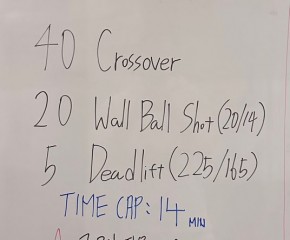 40 Crossover
20 Wall Ball Shot (20/14)
5 Deadlift (225/165)
TIME CAP: 14 MIN